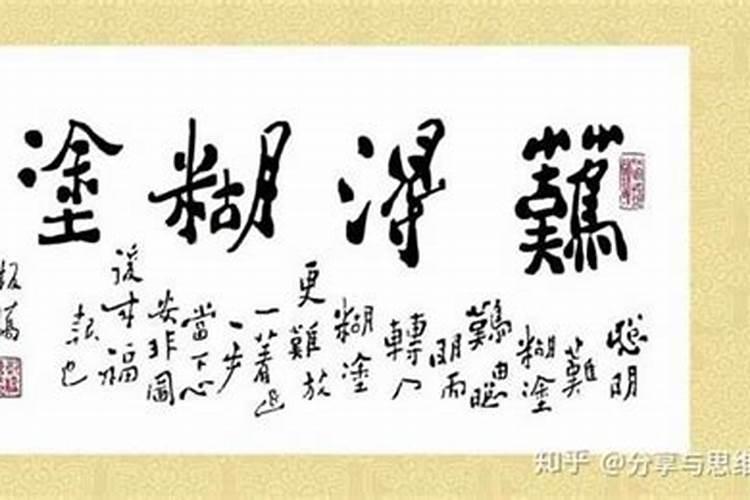 難得糊塗
聰明
難
糊塗
難由聰
明而
轉入
糊塗
更難放
一著退
一步
當下心
安非圖
後來福
報也
板橋
知乎 @分享与思维